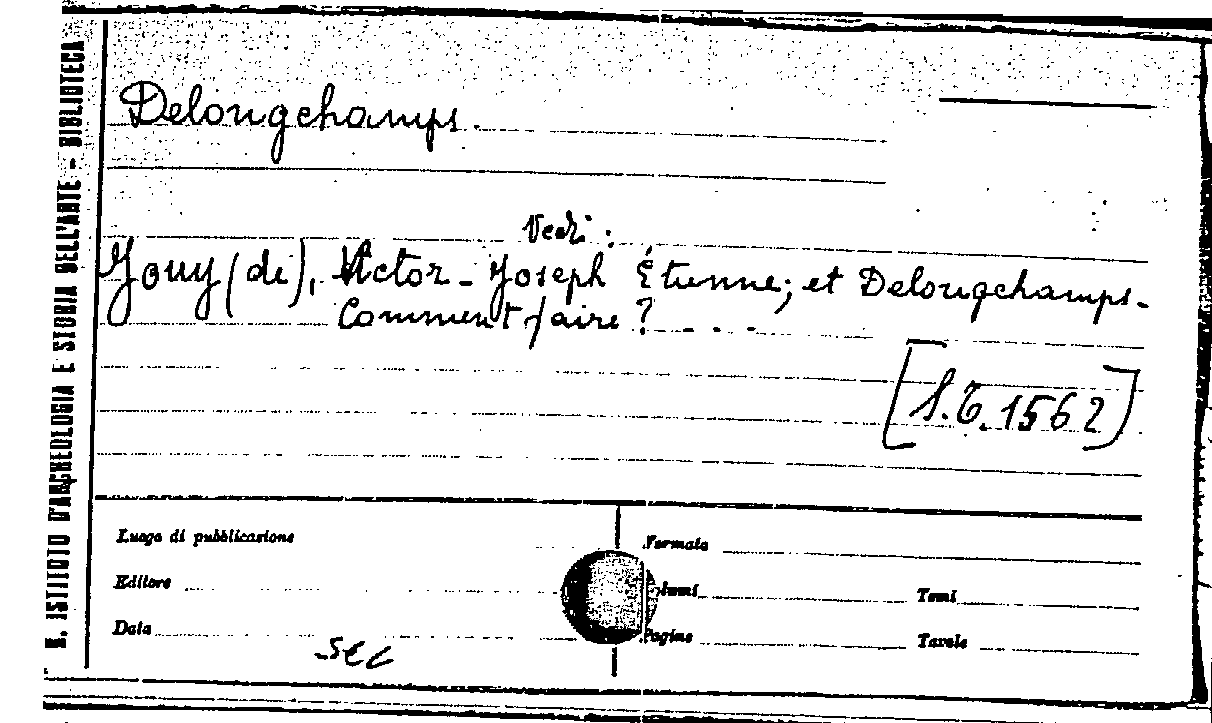 R. ISTITUTO D'ARCHEOLOGIA E STORIA DELL'ARTE - BIBLIOTECA
Delongchamps.
Vedi:
Jouy (de), Victor-Joseph Étienne; et Delongchamps-
Comment faire? . . .
[S.T. 1562]
Luogo di pubblicazione
Formato
Editore
Volumi
Tomi
Data
Pagine
Tavole